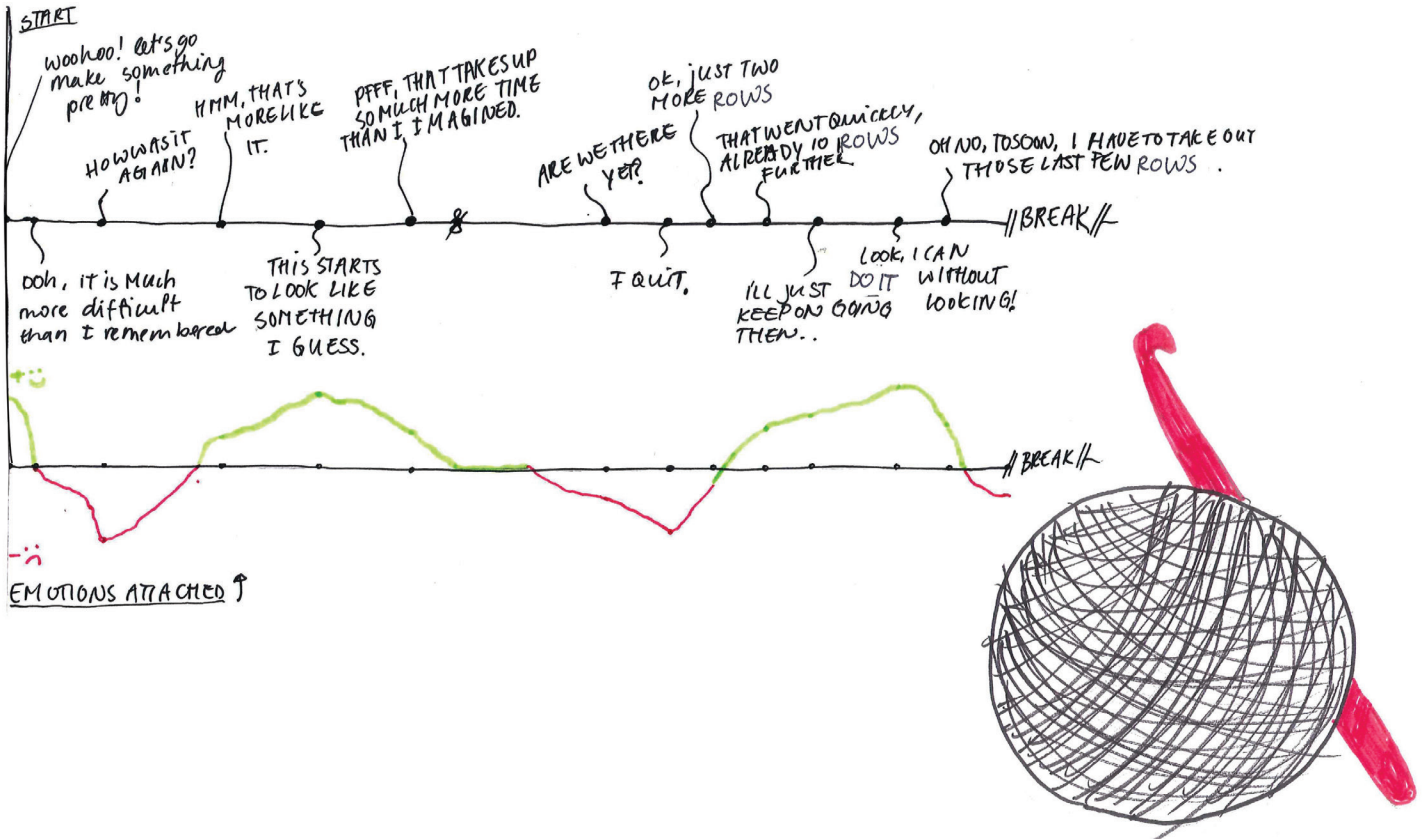 START
woohoo! let's go
make something
pretty!
HOW WAS IT
AGAIN?
HMM, THAT'S
MORE LIKE
IT.
PFFF, THAT TAKES UP
SO MUCH MORE TIME
THAN I IMAGINED.
ARE WE THERE
YET?
OK, JUST TWO
MORE ROWS
THAT WENT QUICKLY,
ALREADY 10 ROWS
FURTHER
OH NO, TOSOON, I HAVE TO TAKE OUT
THOSE LAST FEW ROWS.
//BREAK//
ooh, it is much
more difficult
than I remembered
THIS STARTS
TO LOOK LIKE
SOMETHING
I GUESS.
I QUIT.
I'LL JUST
KEEP ON GOING
THEN..
LOOK, I CAN
DO IT WITHOUT
LOOKING!
+ :)
//BREAK//
- :(
EMOTIONS ATTACHED ↑